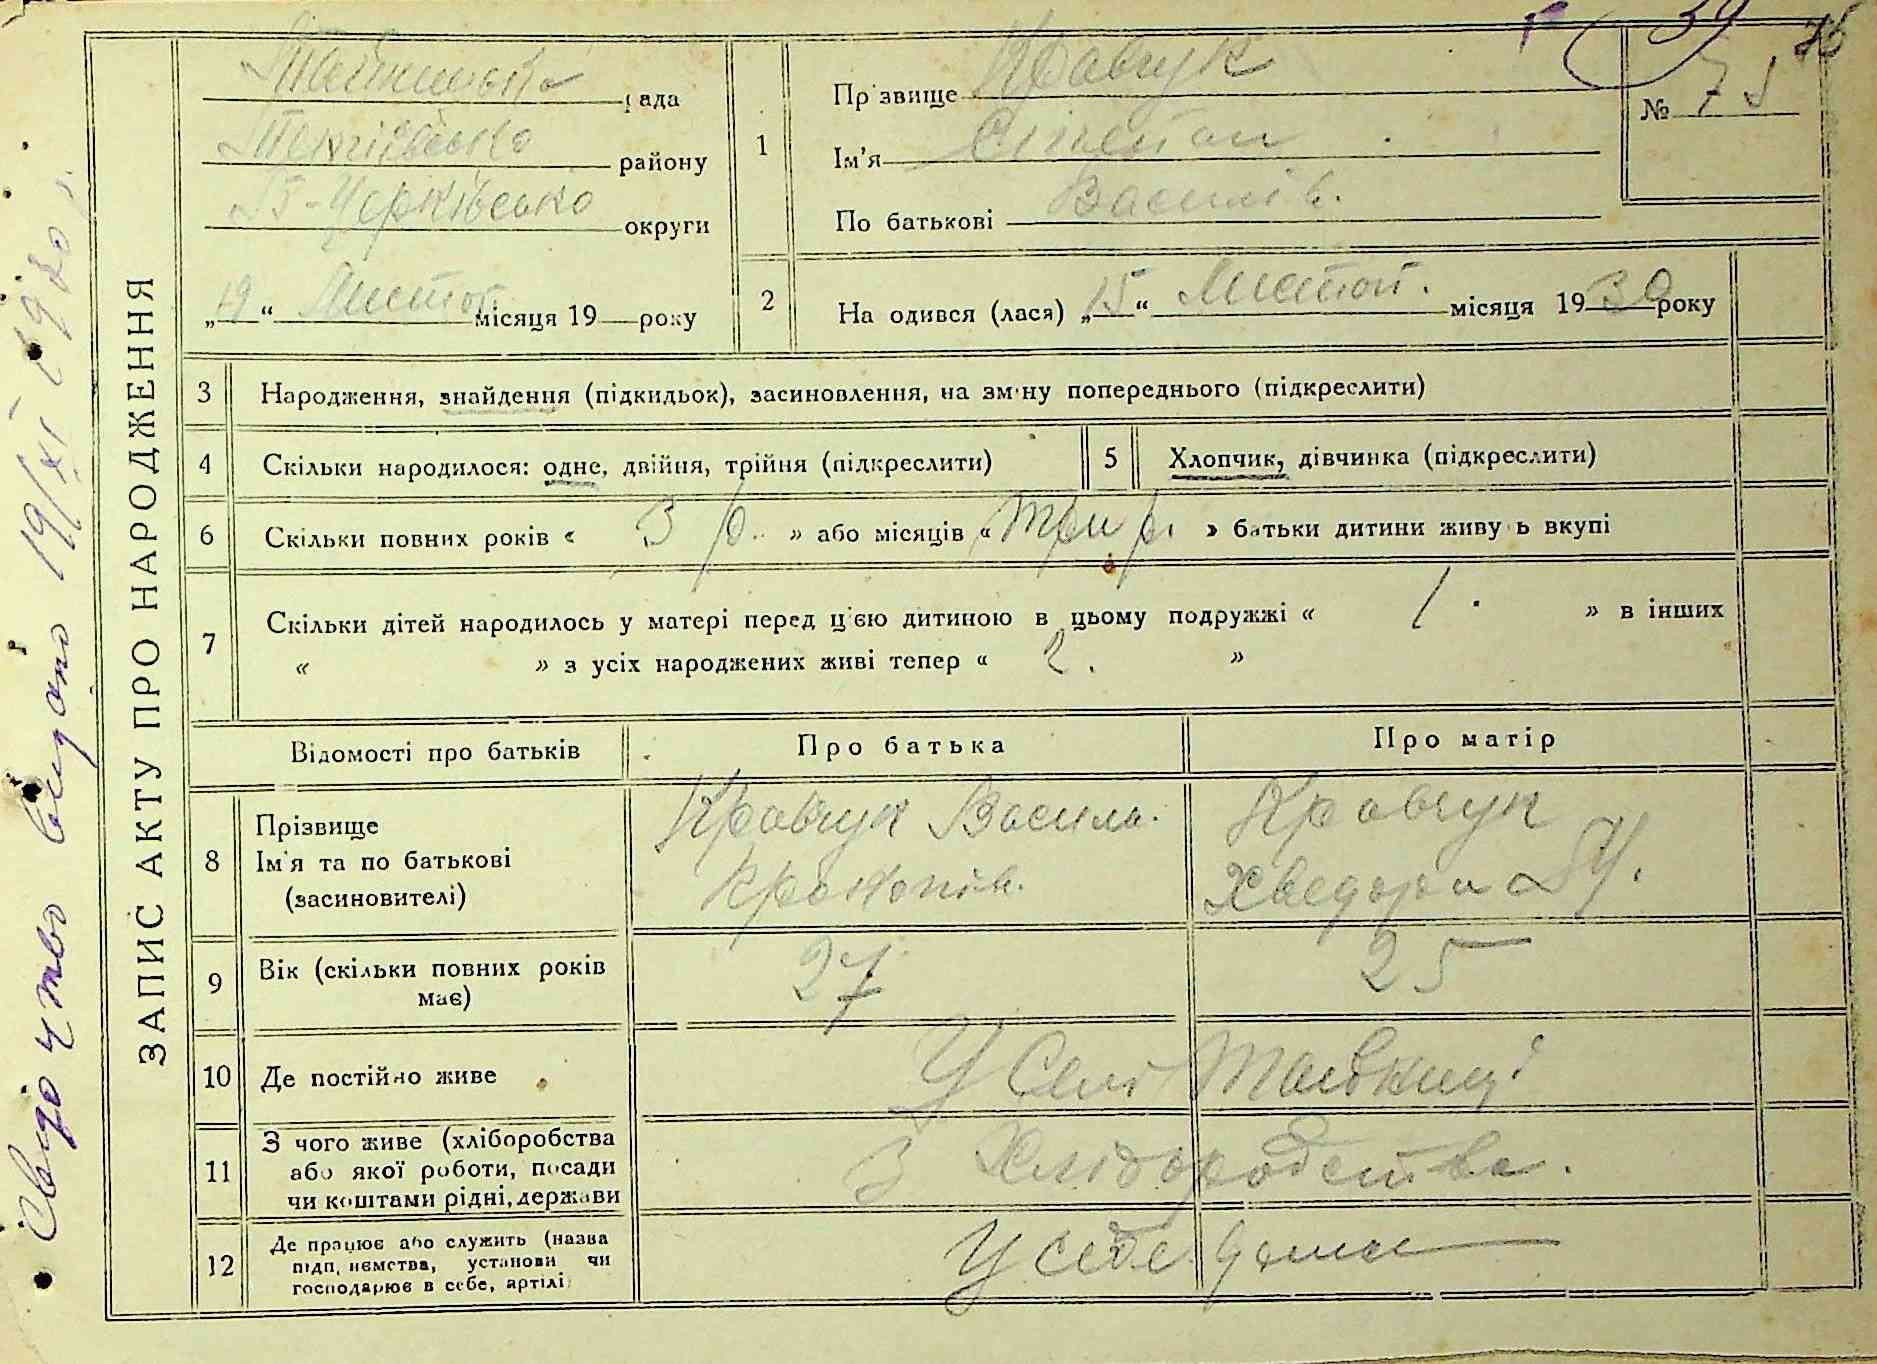 39 75
ЗАПИС АКТУ ПРО НАРОДЖЕННЯ
Свідоцтво видано 19/XI 1930 р.
рада
району
Б-Церківсько округи
„19“ Листоп місяця 19 року
1
Прізвище Кравчук
Ім'я Степан
По батькові Василів.
№ 75
2
Народився (лася) „15“ Листоп. місяця 1930 року
3 Народження, знайдення (підкидьок), засиновлення, на зміну попереднього (підкреслити)
4 Скільки народилося: одне, двійня, трійня (підкреслити)
5 Хлопчик, дівчинка (підкреслити)
6 Скільки повних років « 3 р. » або місяців « три р. » батьки дитини живуть вкупі
7 Скільки дітей народилось у матері перед цією дитиною в цьому подружжі « 1. » в інших
« » з усіх народжених живі тепер « 2. »
Відомості про батьків Про батька Про матір
8 Прізвище
Ім'я та по батькові
(засиновителі)
Кравчук Василь.
Прокопів.
Кравчук
Хведора
9 Вік (скільки повних років
має)
27 25
10 Де постійно живе У Селі
11 З чого живе (хліборобства
або якої роботи, посади
чи коштами рідні, держави
З Хліборобства.
12 Де працює або служить (назва
підп, иємства, установи чи
господарює в себе, артілі)
У себе дома